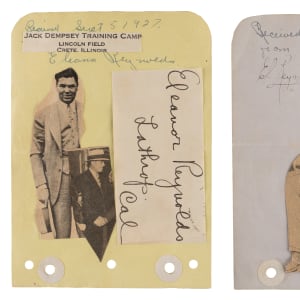 Sept 5 1927.
JACK DEMPSEY TRAINING CAMP
LINCOLN FIELD
CRETE, ILLINOIS
Eleanor Reynolds
Eleanor Reynolds
Lathrop
Cal
Received
from